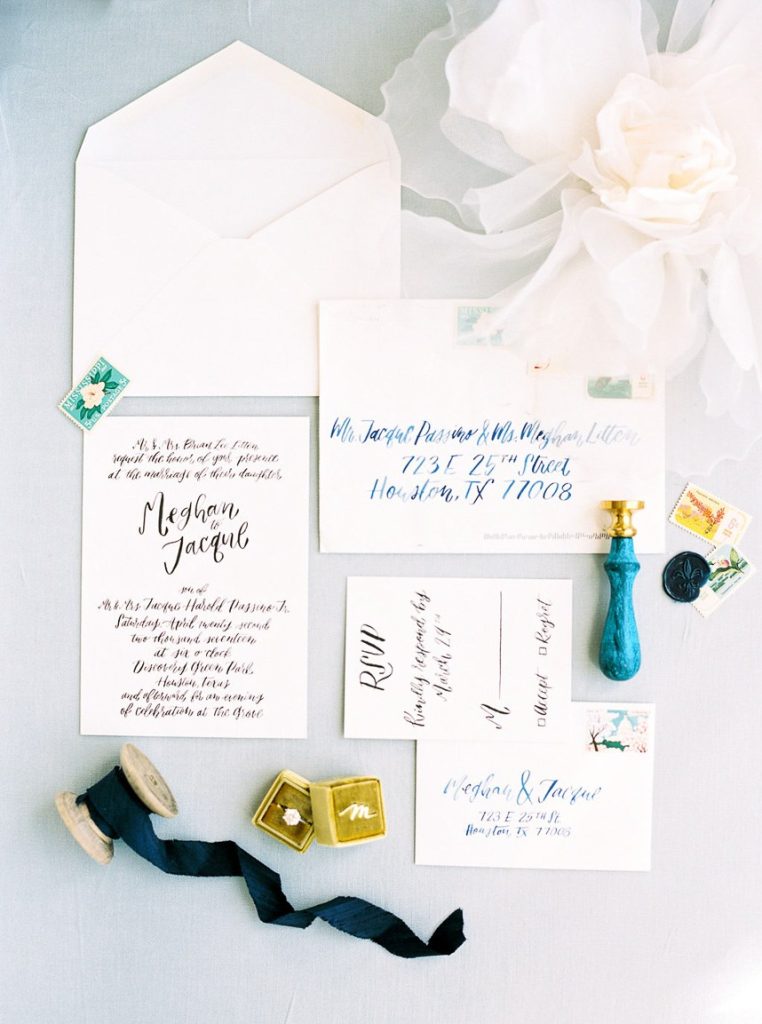 MISSISSIPPI
5¢ U.S. POSTAGE
Mr. & Mrs. Brian Lee Litten
request the honor of your presence
at the marriage of their daughter,
Meghan
to
Jacque
son of
Mr. & Mrs. Jacque Harold Passino Jr.
Saturday, April twenty second
two thousand seventeen
at six o'clock
Discovery Green Park,
Houston, Texas
and afterward for an evening
of celebration at the Grove
Mr. Jacque Passino & Ms. Meghan Litten
723 E 25TH Street
Houston, TX 77008
RSVP
Kindly respond by
March 29th
M
Accept
Regret
m
Meghan & Jacque
723 E 25TH St.
Houston, TX 77008